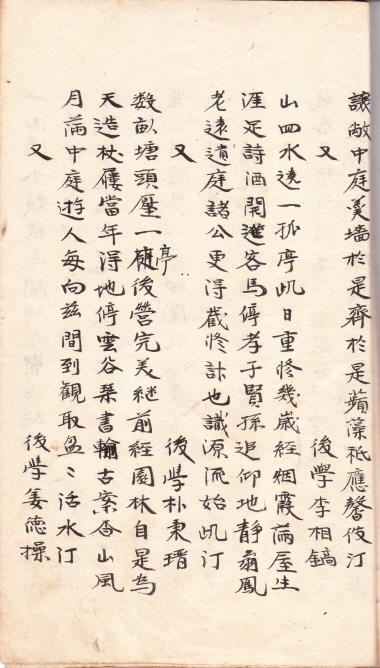 讓敞中庭羹墻於是齊於是蘋藻祗應馨傍汀
後學李相鎬
又
山四水遶一孤亭此日重修幾歲經烟霞滿屋生
涯足詩酒開邀客馬停孝子賢孫追仰地靜翁鳳
老遠遺庭諸公更得藏修計也識源流始此汀
後學朴東瑨
又
數畝塘頭壓一亭後營完美継前經園林自是為
天造杖屨當年得地停雲谷琹書輸古案香山風
月滿中庭遊人每向兹間到観取盈〻活水汀
後學姜德操
又